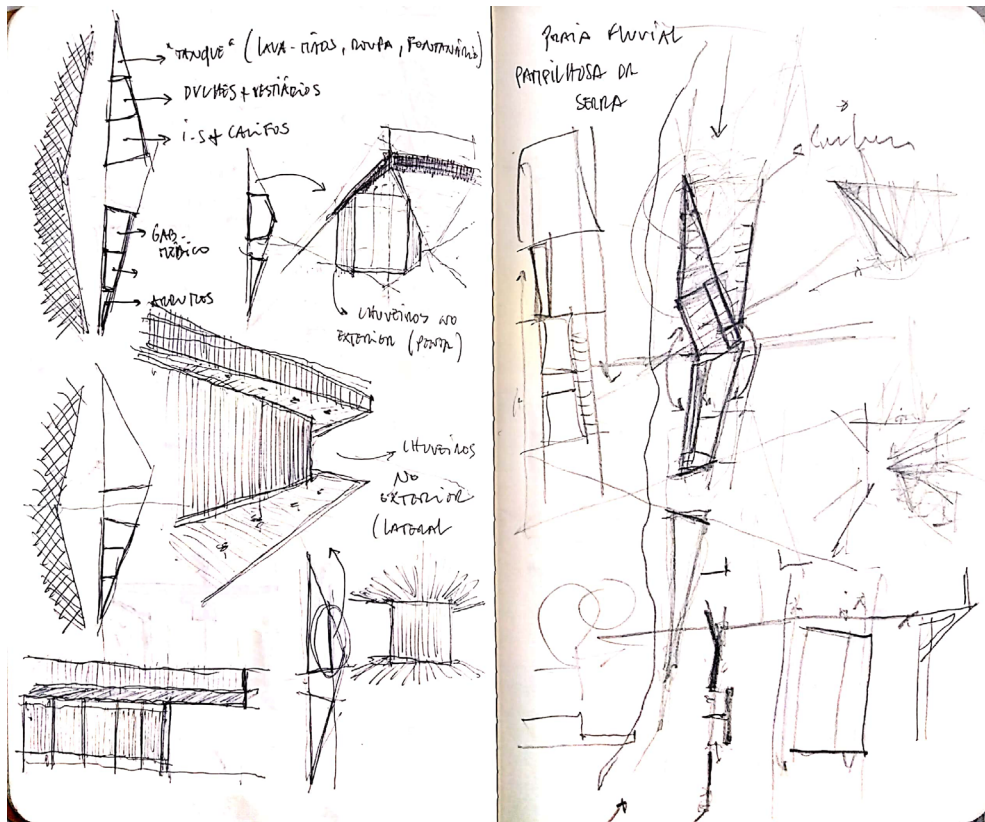 "TANQUE" (LAVA-MÃOS, ROUPA, FONTANÁRIO)
DUCHES + VESTIÁRIOS
I.S + CACIFOS
GAB.
MÉDICO
ARRUMOS
CHUVEIROS NO
EXTERIOR (PONTA)
CHUVEIROS
NO
EXTERIOR
(LATERAL
PRAIA FLUVIAL
PAMPILHOSA DA
SERRA